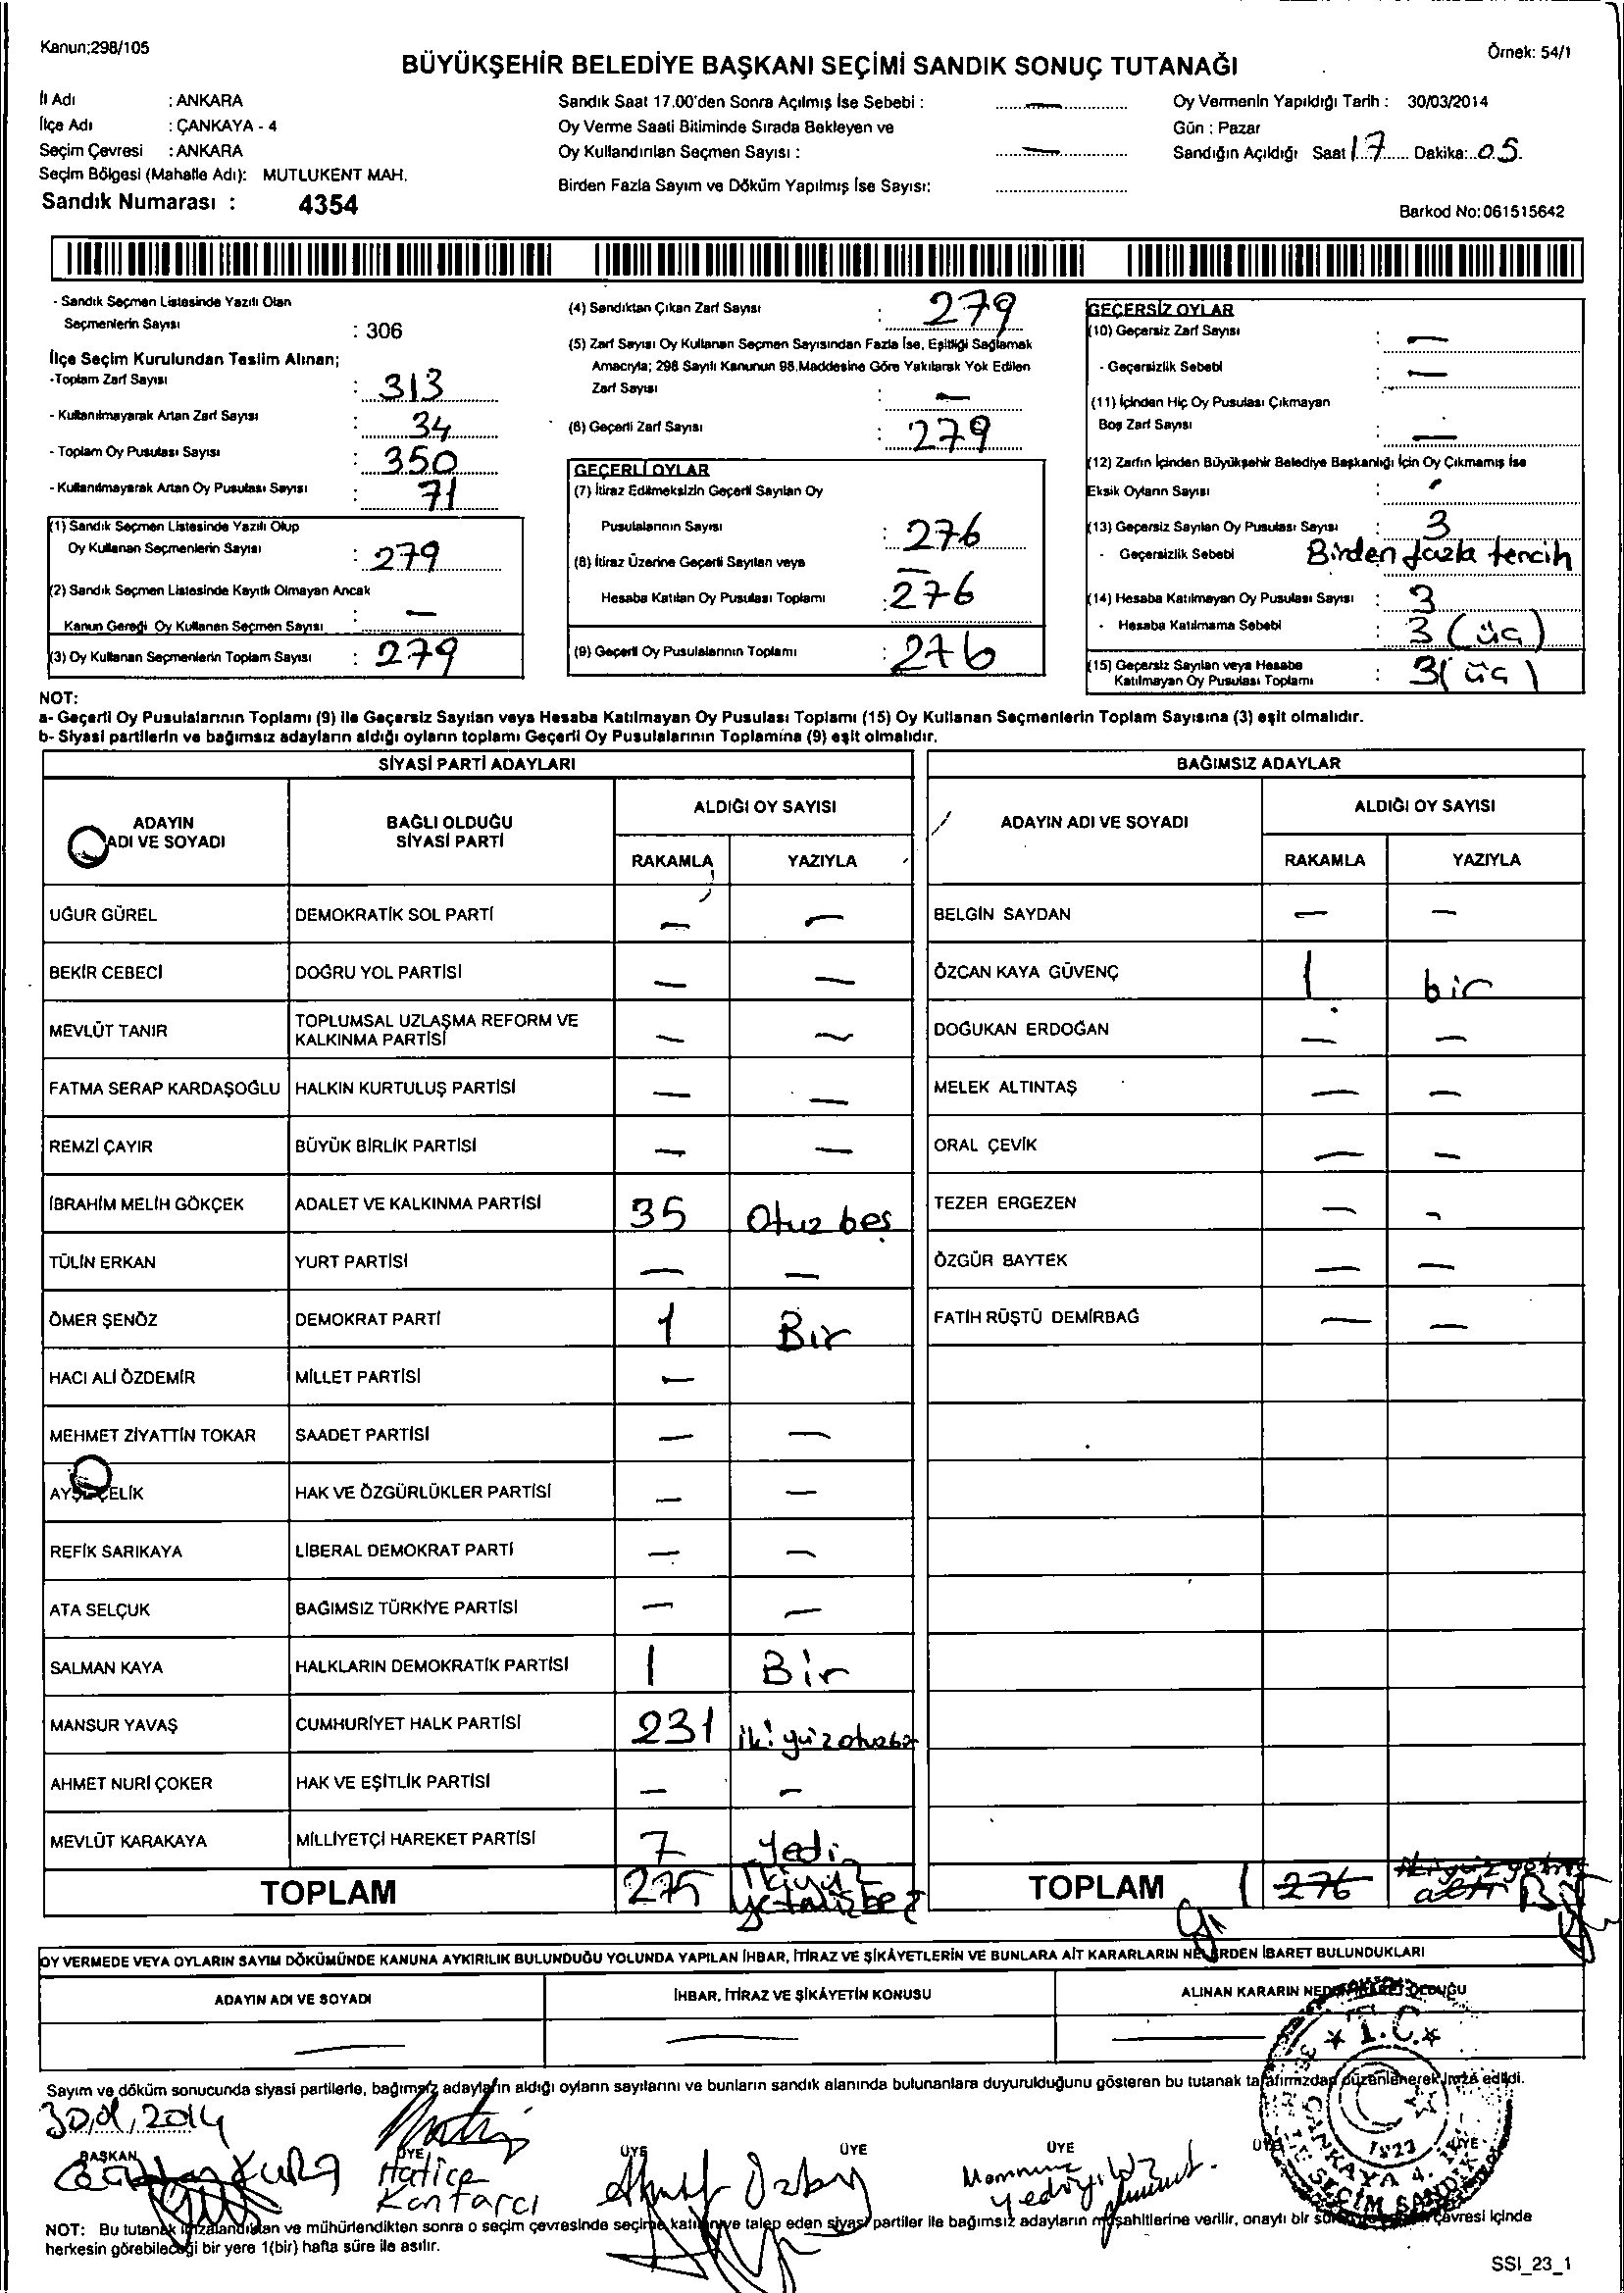 Kanun;298/105
Örnek: 54/1
BÜYÜKŞEHİR BELEDİYE BAŞKANI SEÇİMİ SANDIK SONUÇ TUTANAĞI
İl Adı : ANKARA
İlçe Adı : ÇANKAYA - 4
Seçim Çevresi : ANKARA
Seçim Bölgesi (Mahalle Adı): MUTLUKENT MAH.
Sandık Numarası : 4354
Sandık Saat 17.00'den Sonra Açılmış İse Sebebi : —
Oy Verme Saati Bitiminde Sırada Bekleyen ve
Oy Kullandırılan Seçmen Sayısı : —
Birden Fazla Sayım ve Döküm Yapılmış İse Sayısı:
Oy Vermenin Yapıldığı Tarih : 30/03/2014
Gün : Pazar
Sandığın Açıldığı Saat 17 Dakika: 05
Barkod No: 061515642
- Sandık Seçmen Listesinde Yazılı Olan
Seçmenlerin Sayısı : 306
İlçe Seçim Kurulundan Teslim Alınan;
-Toplam Zarf Sayısı : 313
- Kullanılmayarak Artan Zarf Sayısı : 34
- Toplam Oy Pusulası Sayısı : 350
- Kullanılmayarak Artan Oy Pusulası Sayısı : 71
(1) Sandık Seçmen Listesinde Yazılı Olup
Oy Kullanan Seçmenlerin Sayısı : 279
(2) Sandık Seçmen Listesinde Kayıtlı Olmayan Ancak
Kanun Gereği Oy Kullanan Seçmen Sayısı : —
(3) Oy Kullanan Seçmenlerin Toplam Sayısı : 279
(4) Sandıktan Çıkan Zarf Sayısı : 279
(5) Zarf Sayısı Oy Kullanan Seçmen Sayısından Fazla İse, Eşitliği Sağlamak
Amacıyla; 298 Sayılı Kanunun 98.Maddesine Göre Yakılarak Yok Edilen
Zarf Sayısı : —
(6) Geçerli Zarf Sayısı : 279
GEÇERLİ OYLAR
(7) İtiraz Edilmeksizin Geçerli Sayılan Oy
Pusulalarının Sayısı : 276
(8) İtiraz Üzerine Geçerli Sayılan veya
Hesaba Katılan Oy Pusulası Toplamı : 276
(9) Geçerli Oy Pusulalarının Toplamı : 276
GEÇERSİZ OYLAR
(10) Geçersiz Zarf Sayısı : —
- Geçersizlik Sebebi : —
(11) İçinden Hiç Oy Pusulası Çıkmayan
Boş Zarf Sayısı : —
(12) Zarfın İçinden Büyükşehir Belediye Başkanlığı İçin Oy Çıkmamış İse
Eksik Oyların Sayısı :
(13) Geçersiz Sayılan Oy Pusulası Sayısı : 3
- Geçersizlik Sebebi Birden fazla tercih
(14) Hesaba Katılmayan Oy Pusulası Sayısı : 3
- Hesaba Katılmama Sebebi : 3 (üç)
(15) Geçersiz Sayılan veya Hesaba
Katılmayan Oy Pusulası Toplamı : 3 (üç)
NOT:
a- Geçerli Oy Pusulalarının Toplamı (9) ile Geçersiz Sayılan veya Hesaba Katılmayan Oy Pusulası Toplamı (15) Oy Kullanan Seçmenlerin Toplam Sayısına (3) eşit olmalıdır.
b- Siyasi partilerin ve bağımsız adayların aldığı oyların toplamı Geçerli Oy Pusulalarının Toplamına (9) eşit olmalıdır.
SİYASİ PARTİ ADAYLARI
ADAYIN ADI VE SOYADI BAĞLI OLDUĞU SİYASİ PARTİ ALDIĞI OY SAYISI
RAKAMLA YAZIYLA
UĞUR GÜREL DEMOKRATİK SOL PARTİ — —
BEKİR CEBECİ DOĞRU YOL PARTİSİ — —
MEVLÜT TANIR TOPLUMSAL UZLAŞMA REFORM VE KALKINMA PARTİSİ — —
FATMA SERAP KARDAŞOĞLU HALKIN KURTULUŞ PARTİSİ — —
REMZİ ÇAYIR BÜYÜK BİRLİK PARTİSİ — —
İBRAHİM MELİH GÖKÇEK ADALET VE KALKINMA PARTİSİ 35 Otuz beş
TÜLİN ERKAN YURT PARTİSİ — —
ÖMER ŞENÖZ DEMOKRAT PARTİ 1 Bir
HACI ALİ ÖZDEMİR MİLLET PARTİSİ —
MEHMET ZİYATTİN TOKAR SAADET PARTİSİ — —
AYŞE ÇELİK HAK VE ÖZGÜRLÜKLER PARTİSİ — —
REFİK SARIKAYA LİBERAL DEMOKRAT PARTİ — —
ATA SELÇUK BAĞIMSIZ TÜRKİYE PARTİSİ — —
SALMAN KAYA HALKLARIN DEMOKRATİK PARTİSİ 1 Bir
MANSUR YAVAŞ CUMHURİYET HALK PARTİSİ 231
AHMET NURİ ÇOKER HAK VE EŞİTLİK PARTİSİ — —
MEVLÜT KARAKAYA MİLLİYETÇİ HAREKET PARTİSİ 7 Yedi
TOPLAM 275 İkiyüz yetmişbeş
BAĞIMSIZ ADAYLAR
ADAYIN ADI VE SOYADI ALDIĞI OY SAYISI
RAKAMLA YAZIYLA
BELGİN SAYDAN — —
ÖZCAN KAYA GÜVENÇ 1 bir
DOĞUKAN ERDOĞAN — —
MELEK ALTINTAŞ — —
ORAL ÇEVİK — —
TEZER ERGEZEN — —
ÖZGÜR BAYTEK — —
FATİH RÜŞTÜ DEMİRBAĞ — —
TOPLAM 1 276 ikiyüz yetmiş altı Bir
OY VERMEDE VEYA OYLARIN SAYIM DÖKÜMÜNDE KANUNA AYKIRILIK BULUNDUĞU YOLUNDA YAPILAN İHBAR, İTİRAZ VE ŞİKÂYETLERİN VE BUNLARA AİT KARARLARIN NELERDEN İBARET BULUNDUKLARI
ADAYIN ADI VE SOYADI İHBAR, İTİRAZ VE ŞİKÂYETİN KONUSU ALINAN KARARIN NEDEN İBARET OLDUĞU
— — —
Sayım ve döküm sonucunda siyasi partilerle, bağımsız adayların aldığı oyların sayılarını ve bunların sandık alanında bulunanlara duyurulduğunu gösteren bu tutanak tarafımızdan düzenlenerek imza edildi.
BAŞKAN ÜYE ÜYE ÜYE ÜYE ÜYE ÜYE
Hatice Kantarcı
Yediyıldız
T.C.
1923
ÇANKAYA 4. İLÇE SEÇİM SANDIK
NOT: Bu tutanak imzalandıktan ve mühürlendikten sonra o seçim çevresinde seçime katılan ve talep eden siyasi partiler ile bağımsız adayların müşahitlerine verilir, onaylı bir çevresi içinde
herkesin görebileceği bir yere 1(bir) hafta süre ile asılır.
SSI_23_1